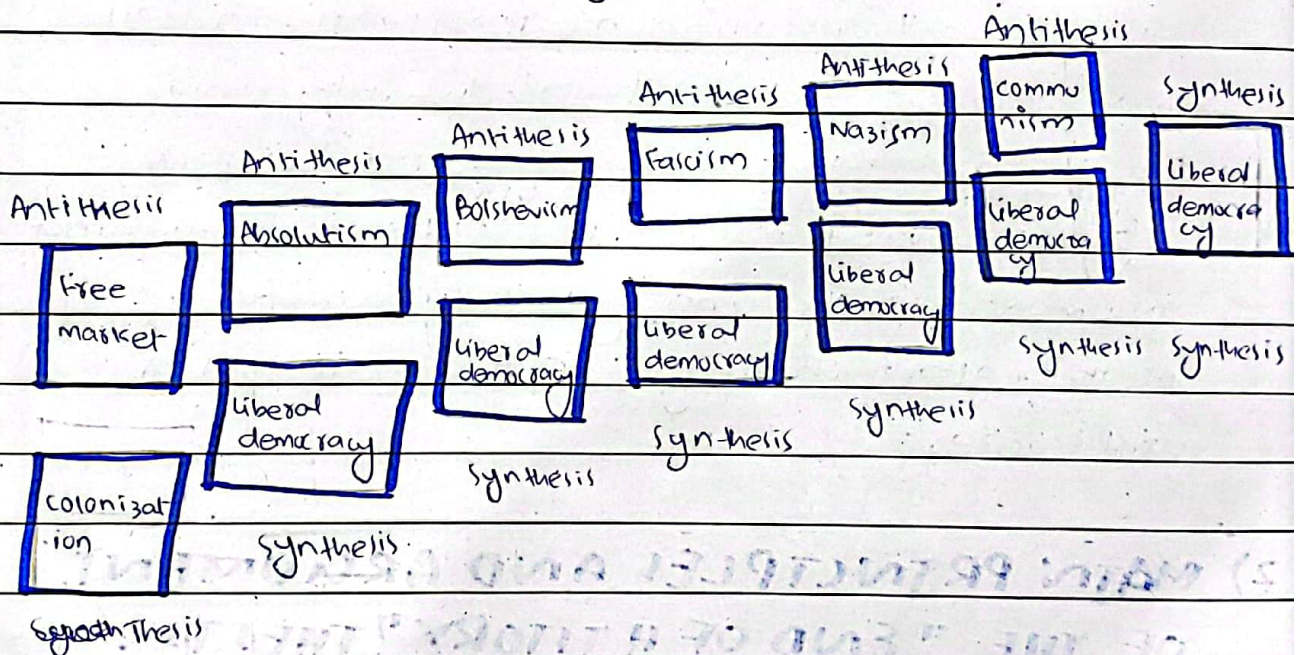 Antithesis
Free
market
colonizat
ion
Thesis
Antithesis
Absolutism
liberal
democracy
synthesis.
Antithesis
Bolshevism
liberal
democracy
synthesis
Antithesis
Fascism
liberal
democracy
synthesis
Antithesis
Nazism
liberal
democracy
synthesis
Antithesis
commu
nism
liberal
democra
cy
synthesis
synthesis
liberal
democra
cy
synthesis
2) MAIN PRINCIPLES AND ARGUMENT
OF THE "END OF HISTORY" THESIS